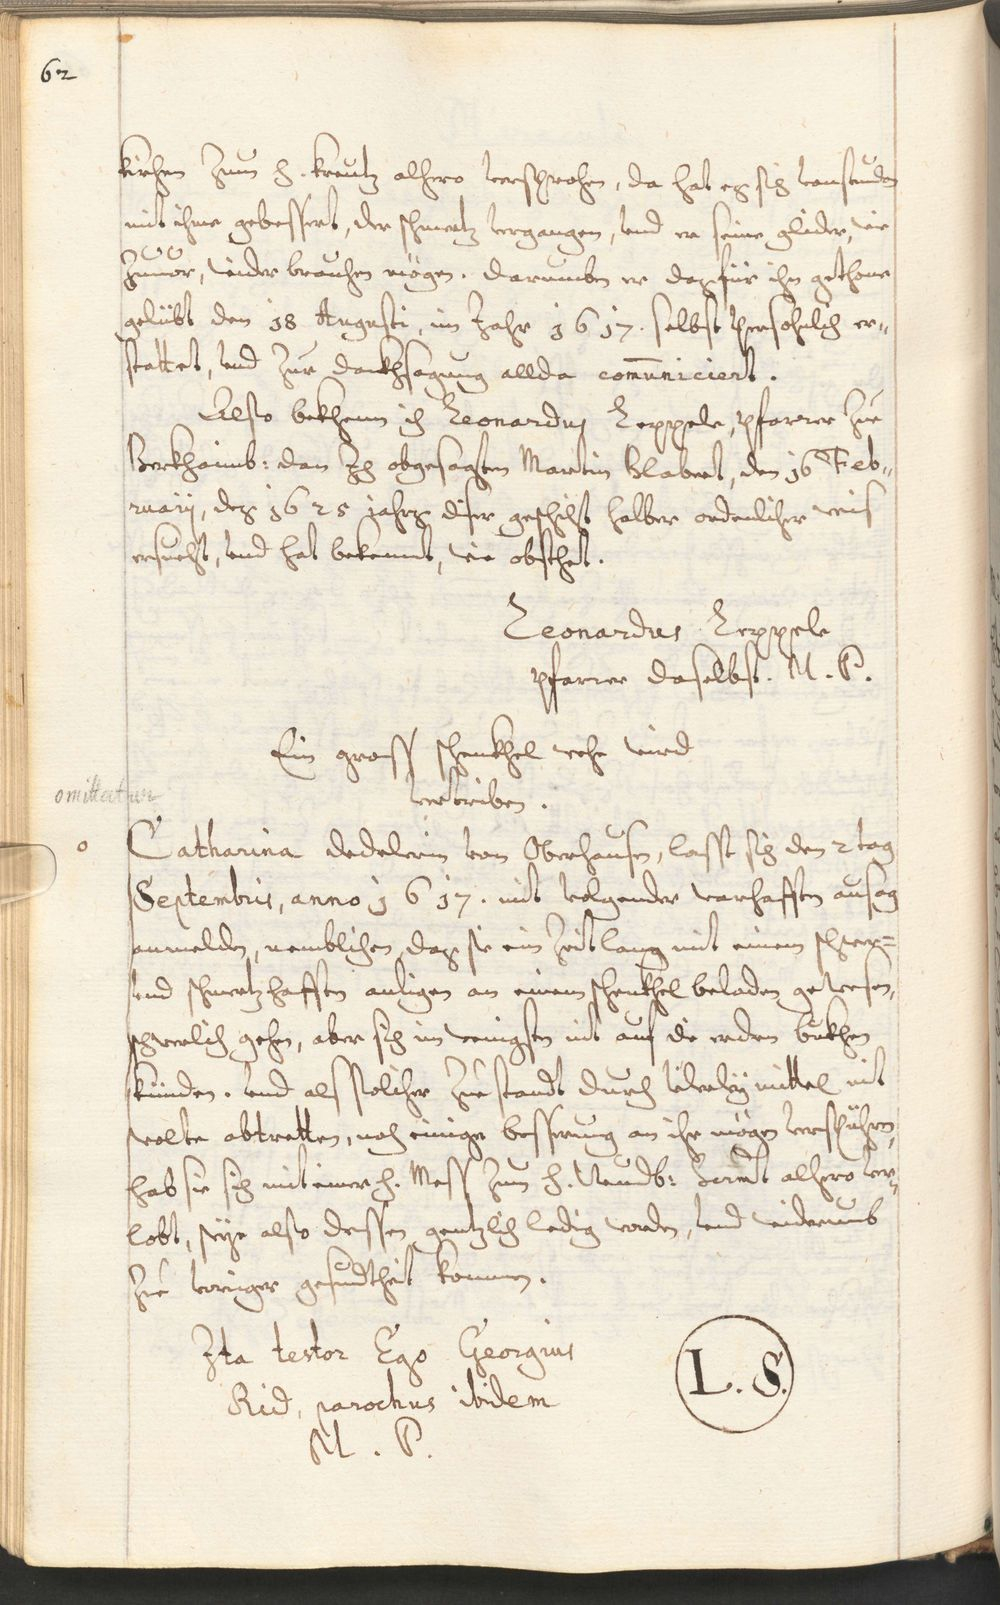 62
kirchen zum H. Kreutz alhero versprochen, da hat es sich von stunden
mit ihme gebessert, der schmertz vergangen, und er seine glider, wie
zuuor, wider brauchen mögen. Darumben er das für ihn gethone
gelübt den 18 Augusti, im Jahr 1617. selbst persohnlich er„
stattet, und zur dankhsagung allda com̅uniciert.
Also bekhenn ich Leonardus Keppele, pfarrer zue
Berkhaimb: dan Ich obgesagten Martin Blabert, den 16 Feb„
ruarij, des 1625 jahrs diser geschicht halber ordenlicher weis
ersucht, und hat bekennt, wie obsthet.
Leonardus Keppele
pfarrer daselbst. M. P.
Ein gross schenkhel wehe wird
vertriben.
omittatur
o
Catharina Dedelerin von Oberhausen, lasst sich den 2 tag
Septembris, anno 1617. mit volgender warhafften aussag
anmelden, namblichen, das sie ein Zeitlang mit einem schwer=
und schmertzhafften anligen an einem schenkhel beladen gewesen,
schwerlich gehen, aber sich im wenigsten nit auf die erden bukhen
künden. und als solicher zuestandt durch mittel nit
wolte abtretten, noch einige besserung an ihr mögen verspühren,
hab sie sich mit einer H. Mess zum H. alhero ver„
lobt, seye also dessen gentzlich ledig worden, und widerumb
zue voriger gesundtheit kommen.
Ita testor Ego Georgius
Rid, parochus ibidem
M. P.
L. S.